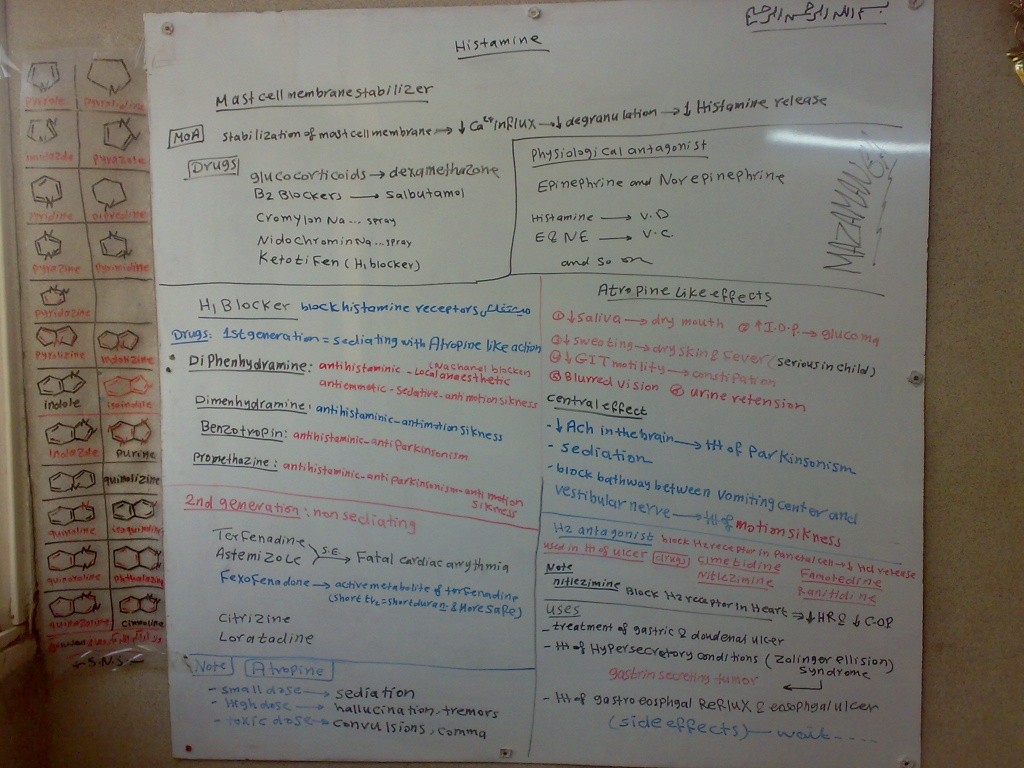 بسم الله الرحمن الرحيم
Histamine
Mast cell membrane stabilizer
MOA stabilization of mast cell membrane → ↓ Ca++ influx → ↓ degranulation → ↓ Histamine release
Drugs
glucocorticoids → dexamethazone
B2 Blockers → salbutamol
Cromylon Na... spray
Nidochromin Na... spray
Ketotifen (H1 blocker)
Physiological antagonist
Epinephrine and Norepinephrine
Histamine → V.D
E & NE → V.C.
and so on
MAZAMANGY
H1 Blocker block histamine receptors
Drugs: 1st generation = sediating with Atropine like action
Diphenhydramine: antihistaminic - Local anaesthetic (Na chanel blocker)
antiemmotic - Sedative - anti motion sikness
Dimenhydramine: antihistaminic - antimotion sikness
Benzotropin: antihistaminic - antiparkinsonism
Promethazine: antihistaminic - anti parkinsonism - anti motion
sikness
2nd generation: non sediating
Terfenadine
Astemizole
S.E → Fatal cardiac arrythmia
Fexofenadone → active metabolite of terfenadine
(short t½ = short duran. & More safe)
Citrizine
Loratadine
Note Atropine
- small dose → sediation
- High dose → hallucination, tremors
- toxic dose → convulsions, comma
Atropine Like effects
① ↓ saliva → dry mouth ② ↑ I.O.P. → glucoma
③ ↓ sweating → dry skin & Fever (serious in child)
④ ↓ GIT motility → constipation
⑤ Blurred vision ⑥ urine retension
central effect
- ↓ Ach in the brain → ttt of Parkinsonism
- sediation
- block bathway between Vomiting center and
vestibular nerve → ttt of motion sikness
H2 antagonist block H2 receptor in Parietal cell → ↓ Hcl release
used in ttt of ulcer drugs Cimetidine Famotedine
Nitlezimine Ranitidine
Note
nitlezimine Block H2 receptor in Heart → ↓ HR & ↓ C.O.P
uses
- treatment of gastric & doudenal ulcer
- ttt of Hypersecretory conditions (Zolinger ellision)
syndrome
gastrin secreting tumor
- ttt of gastro eosphgal Reflux & easophgal ulcer
(side effects) — wait....
Pyrrole Pyrrolidine
Imidazole Pyrazole
Pyridine Piperidine
Pyrazine Pyrimidine
Pyridazine
Pyrrolizine Indolizine
Indole Isoindole
Indazole Purine
quinolizine
quinoline isoquinoline
quinoxaline Phthalazine
quinazoline Cinnoline
S.N.S.